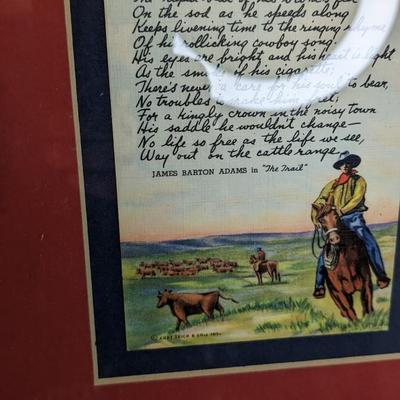 On the sod as he speeds along
Keeps livening time to the ringing rhyme
Of his rollicking cowboy song.
His eyes are bright and his heart is light
As the smoke of his cigarette;
There's never a care for his soul to bear,
No troubles make him fret;
For a kingly crown in the noisy town
His saddle he wouldn't change—
No life so free as the life we see,
Way out on the cattle range.
JAMES BARTON ADAMS in "The Trail"